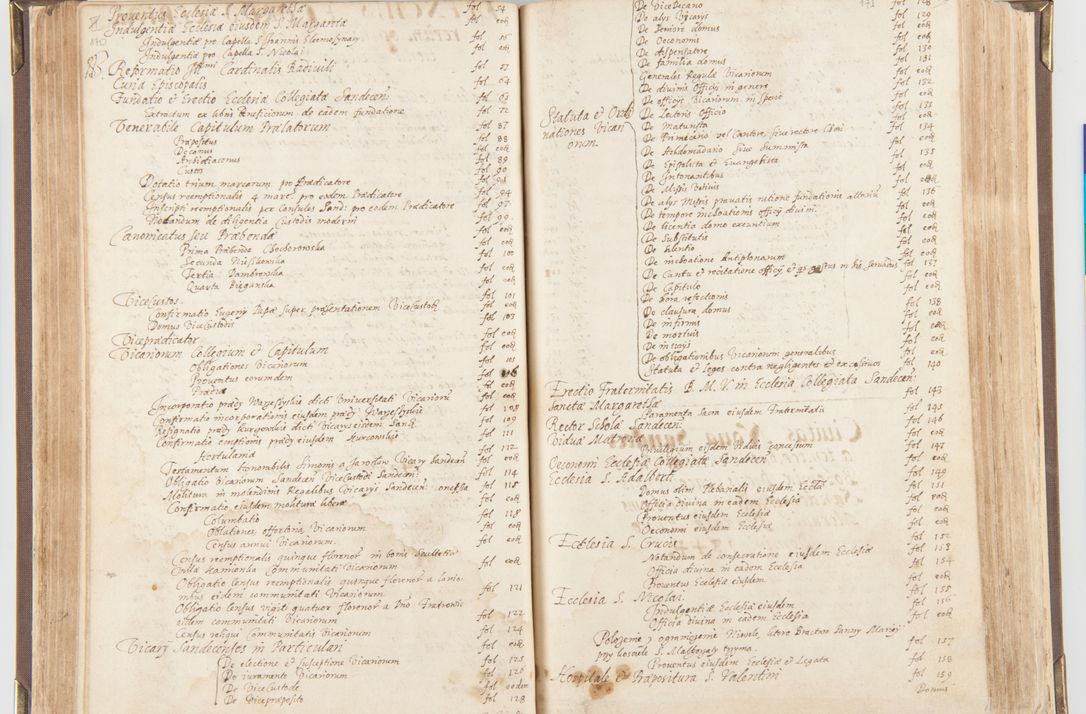 Proventus Ecclesiæ S. Margaretæ fol 54
Indulgentiæ Ecclesiæ eiusdem S. Margaretæ fol eod
Indulgentiæ pro Capella S. Joannis Eleemosynary fol 56
Indulgentiæ pro Capella S. Nicolai fol eod
Reformatio Illmi Cardinalis Radivili fol 57
Curia Episcopalis fol 64
Fundatio et Erectio Ecclesiæ Collegiatæ Sandecen: fol 63
Extractum ex libris Beneficiorum de eadem fundatione fol 72
Venerabile Capitulum Prælatorum fol 87
Præpositus fol 88
Decanus fol eod
Archidiaconus fol 89
Custos fol 90
Dotatio trium marcarum pro Prædicatore
Census reemptionalis 4 marc. pro eodem Prædicatore fol 94
Inscripti reemptionalis per Consules Sand: pro eodem Prædicatore fol 97
Notandum de diligentia Custodis moderni fol 99
Canonicatus seu Præbendæ fol eod
Prima Præbenda Chochorowska fol 100
Secunda fol eod
Tertia Dambrowska fol eod
Quarta Bieganska fol eod
Vicecustos fol 101
Confirmatio Eugeny Papæ super præsentationem Vicecustodis fol eod
Domus Vicecustodis fol 103
Vicepraedicator fol eod
Vicariorum Collegium et Capitulum fol eod
Obligationes Vicariorum fol 105
Proventus eorumdem fol 106
Prædia fol eod
Incorporatio prædy dicti Universitati Vicariorum fol eod
Confirmatio incorporationis eiusdem prædy fol 108
Resignatio prædy dicti Vicarys eisdem Sand. fol 109
Confirmatio emptionis prædy eiusdem fol 111
Hortulania fol 112
Testamentum Honorabilis Simonis a Jarosław Vicary Sandecen fol eod
Obligatio Vicariorum Sandecen Vicecustodi Sandecen: fol 114
Molitura in molendinis Regalibus Vicarys Sandecen: concessa fol 115
Confirmatio eiusdem molituræ liberæ fol eod
Columbatio fol 118
Oblationes, offertoria, Vicariorum fol eod
Census annui Vicariorum. fol eod
Census reemptionalis quinque florenor in bonis
Villæ Kamionka Communitati Vicariorum fol eod
Obligatio Census reemptionalis quinque florenor a
eidem communitati Vicariorum fol 121
Obligatio Census viginti quatuor florenor a
eidem communitati Vicariorum fol 122
Census reliqui Communitatis Vicariorum fol 124
Vicary Sandecenses in Particulari fol eod
De electione et susceptione Vicariorum fol 125
De iuramento Vicariorum fol 126
De Vicecustode fol eodem
De Vicepræposito fol 128
De Vicedecano fol 128
De alys Vicarys fol 129
De Seniore domus fol eod
De Oeconomis fol eod
De dispensatore fol 130
De familia domus fol 131
Generales Regulæ Vicariorum fol eod
De divinis Officys in genere fol 132
De officys Vicariorum in specie fol eod
De Lectoris Officio fol 133
Statuta et Ordi
nationes Vicari
orum.
De Matunista fol eod
De Primiceriо vel Cantore, sive rectore Chori fol 134
De Hebdomadario sive Summista fol eod
De Epistolista et Euangelista fol 135
De Intonantibus fol eod
De Missis Votivis fol eod
De alys Missis privatis ratione fundationis altarium fol 136
De tempore inchoationis officy divini. fol eod
De licentia domo exeuntium fol eod
De Substitutis fol eod
De silentio fol eod
De inchoatione Antiphonarum fol eod
De Cantu et recitatione officy et in his servandis fol 137
De Capitulo fol eod
De hora refectionis fol eod
De clausura domus fol 138
De infirmis fol eod
De mortuis fol eod
De fol eod
De obligationibus Vicariorum generalibus fol eod
Statuta et leges contra negligentes et excessivos fol 140
Erectio Fraternitatis B. M. V. in Ecclesia Collegiata Sandecen:
Sanctæ Margaretæ fol 143
Paramenta sacra eiusdem Fraternitatis fol 145
Rector Scholæ Sandecen: fol 146
Viduæ Matronæ fol eod
Privilegium eisdem Viduis concessum fol 147
Oeconomi Ecclesiæ Collegiatæ Sandecen fol eod
Ecclesia S. Adalberti fol 149
Domus olim Plebanalis eiusdem Ecclæ fol 151
Officia Divina in eadem Ecclesia fol eod
Proventus eiusdem Ecclesiæ fol eod
Oeconomi eiusdem Ecclesiæ fol eod
Ecclesia S. Crucis fol 152
Notandum de consecratione eiusdem Ecclesiæ fol 153
Officia divina in eadem Ecclesia fol 154
Proventus Ecclesiæ eiusdem. fol eod
Ecclesia S. Nicolai. fol 155
Indulgentiæ Ecclesiæ eiusdem fol 156
Officia Divina in eadem Ecclesia fol eod
Położenie y ograniczenie które Bractwo Panny Mariey
przy kosciele S. trzyma. fol 157
Proventus eiusdem Ecclesiæ et Legata fol 158
Hospitale et Præpositura S. Valentini fol 159
Domus